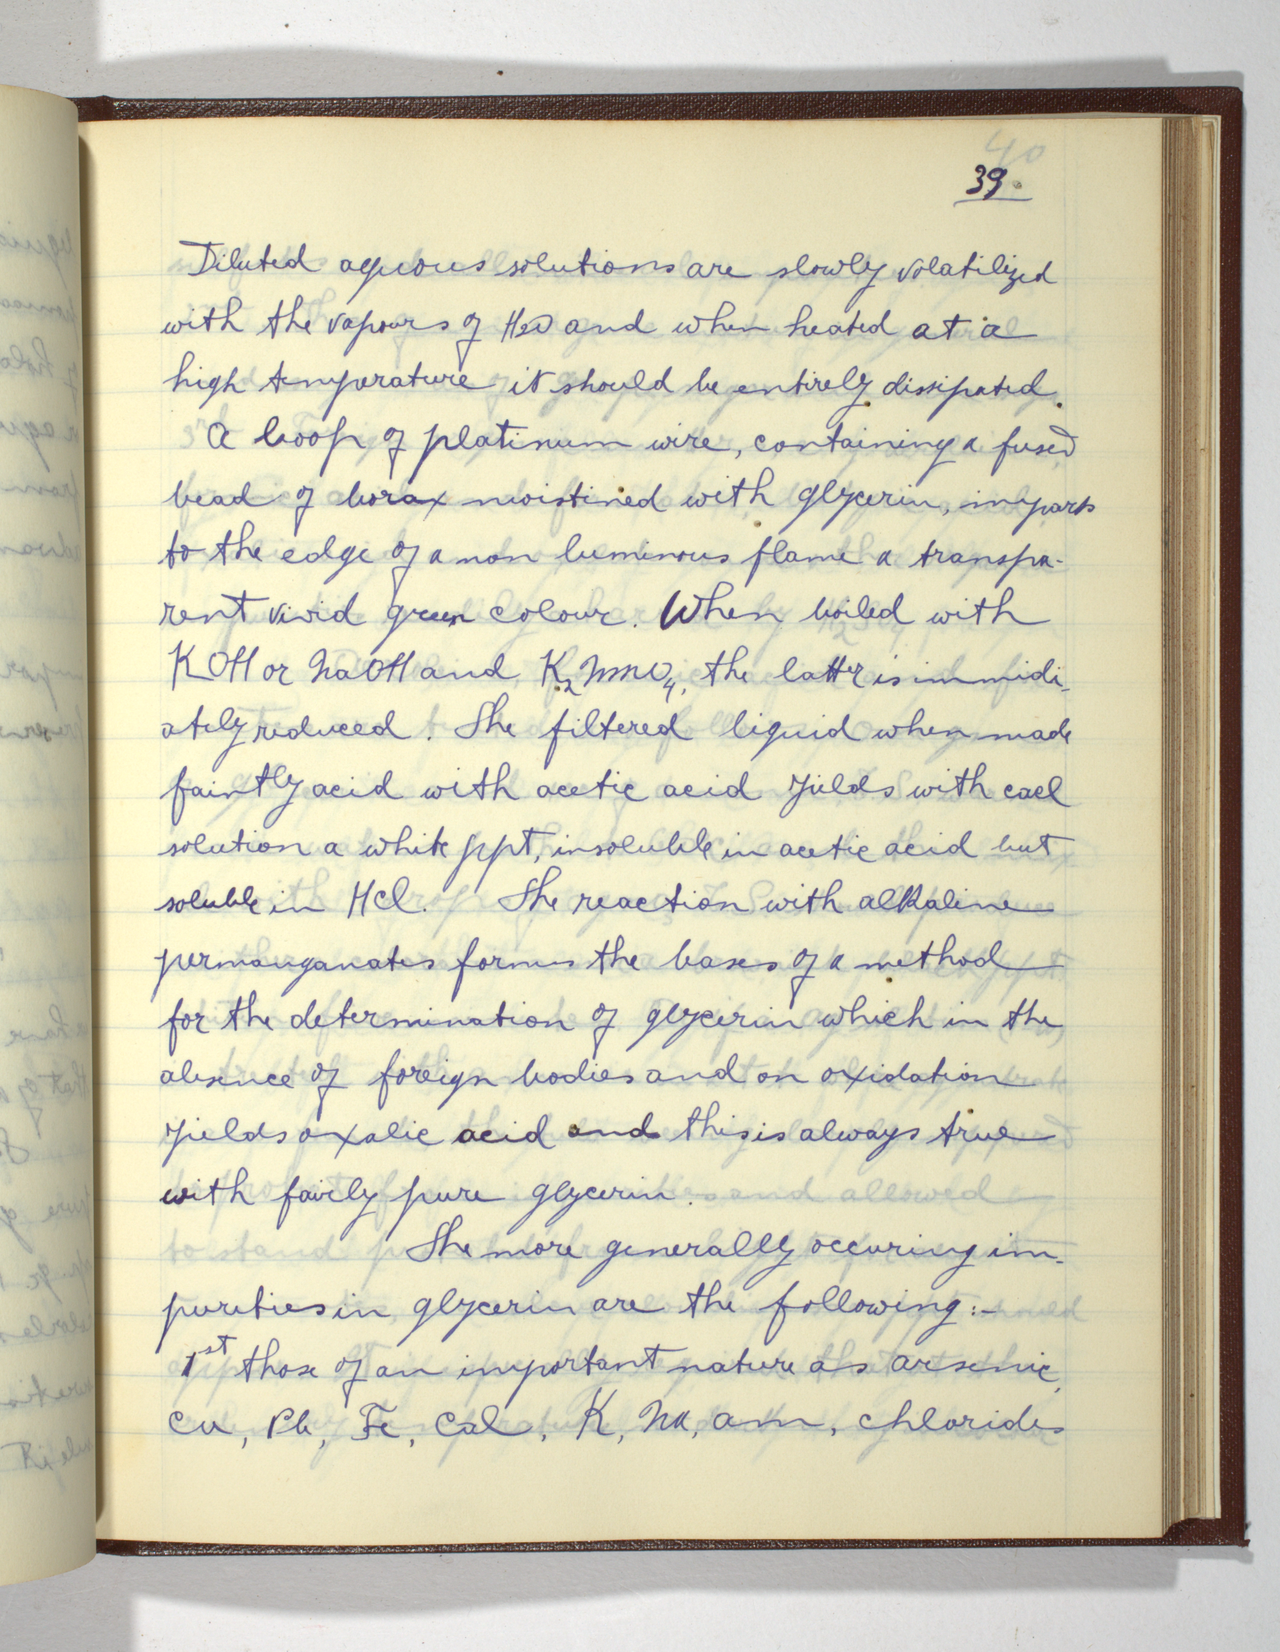 40
39.
Diluted aqueous solutions are slowly volatilized
with the vapours of H2O and when heated at a
high temperature it should be entirely dissipated.
A loop of platinum wire, containing a fused
bead of borax moistined with glycerin, imparts
to the edge of a non luminous flame a transpa-
rent vivid green colour. When boiled with
KOH or NaOH and K2MnO4, the latter is immidi-
ately reduced. The filtered liquid when made
faintly acid with acetic acid yields with cacl
solution a white ppt, insoluble in acetic acid but
soluble in HCl. The reaction with alkaline
permanganates forms the bases of a method
for the determination of glycerin which in the
absence of foreign bodies and on oxidation
yields oxalic acid and this is always true
with fairly pure glycerin.
The more generally occuring im-
purities in glycerin are the following:-
1st those of an important nature as arsenic,
Cu, Pb, Fe, Cal, K, Na, am, chlorides